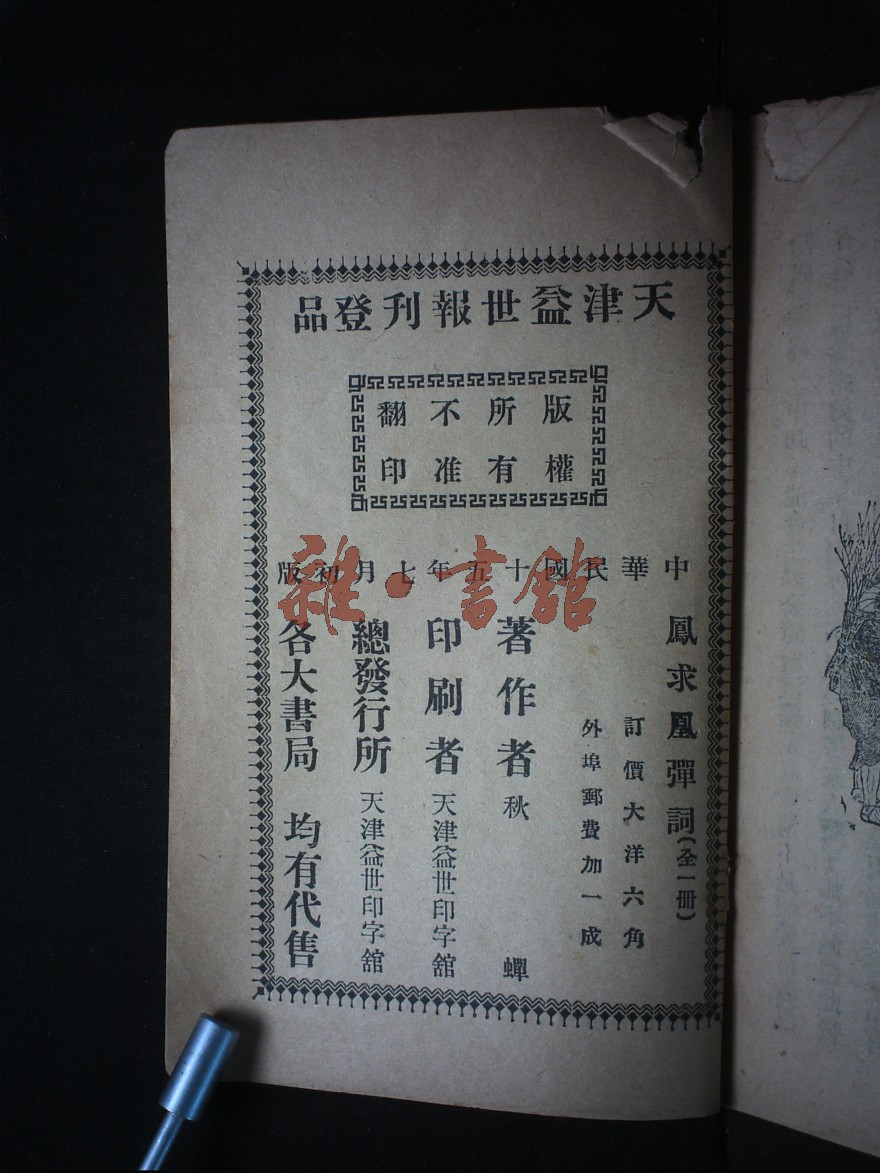 天津益世報刊登品
版權所有不准翻印
中華民國十五年七月初版
鳳求凰彈詞(全一冊)
訂價大洋六角
外埠郵費加一成
著作者 秋蟬
印刷者 天津益世印字舘
總發行所 天津益世印字舘
各大書局 均有代售
雜·書舘